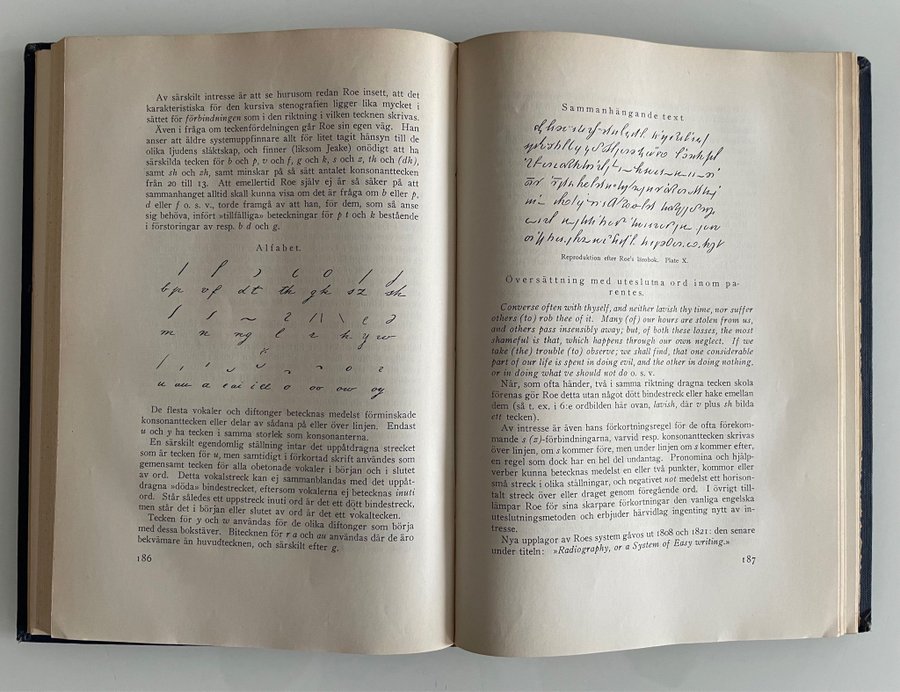 Av särskilt intresse är att se hurusom redan Roe insett, att det
karakteristiska för den kursiva stenografien ligger lika mycket i
sättet för förbindningen som i den riktning i vilken tecknen skrivas.
Även i fråga om teckenfördelningen går Roe sin egen väg. Han
anser att äldre systemuppfinnare allt för litet tagit hänsyn till de
olika ljudens släktskap, och finner (liksom Jeake) onödigt att ha
särskilda tecken för b och p, v och f, g och k, s och z, th och (dh),
samt sh och zh, samt minskar på så sätt antalet konsonanttecken
från 20 till 13. Att emellertid Roe själv ej är så säker på att
sammanhanget alltid skall kunna visa om det är fråga om b eller p,
d eller f o. s. v., torde framgå av att han, för dem, som så anse
sig behöva, infört »tillfälliga» beteckningar för p t och k bestående
i förstoringar av resp. b d och g.
Alfabet.
bp vf dt th gk sz sh
m n ng l r h y w
u au a e ai i ee o oo ow oy
De flesta vokaler och diftonger betecknas medelst förminskade
konsonanttecken eller delar av sådana på eller över linjen. Endast
u och y ha tecken i samma storlek som konsonanterna.
En särskilt egendomlig ställning intar det uppåtdragna strecket
som är tecken för u, men samtidigt i förkortad skrift användes som
gemensamt tecken för alla obetonade vokaler i början och i slutet
av ord. Detta vokalstreck kan ej sammanblandas med det uppåt-
dragna »döda» bindestrecket, eftersom vokalerna ej betecknas inuti
ord. Står således ett uppstreck inuti ord är det ett dött bindestreck,
men står det i början eller slutet av ord är det ett vokaltecken.
Tecken för y och w användas för de olika diftonger som börja
med dessa bokstäver. Bitecknen för r a och au användas där de äro
bekvämare än huvudtecknen, och särskilt efter g.
186
Sammanhängande text
Reproduktion efter Roe's lärobok. Plate X.
Översättning med uteslutna ord inom pa-
rentes.
Converse often with thyself, and neither lavish thy time, nor suffer
others (to) rob thee of it. Many (of) our hours are stolen from us,
and others pass insensibly away; but, of both these losses, the most
shameful is that, which happens through our own neglect. If we
take (the) trouble (to) observe; we shall find, that one considerable
part of our life is spent in doing evil, and the other in doing nothing,
or in doing what ve should not do o. s. v.
När, som ofta händer, två i samma riktning dragna tecken skola
förenas gör Roe detta utan något dött bindestreck eller hake emellan
dem (så t. ex. i 6:e ordbilden här ovan, lavish, där v plus sh bilda
ett tecken).
Av intresse är även hans förkortningsregel för de ofta förekom-
mande s (z)-förbindningarna, varvid resp. konsonanttecken skrivas
över linjen, om s kommer före, men under linjen om s kommer efter,
en regel som dock har en hel del undantag. Pronomina och hjälp-
verber kunna betecknas medelst en eller två punkter, kommor eller
små streck i olika ställningar, och negativet not medelst ett horison-
talt streck över eller draget genom föregående ord. I övrigt till-
lämpar Roe för sina skarpare förkortningar den vanliga engelska
uteslutningsmetoden och erbjuder härvidlag ingenting nytt av in-
tresse.
Nya upplagor av Roes system gåvos ut 1808 och 1821: den senare
under titeln: »Radiography, or a System of Easy writing.»
187